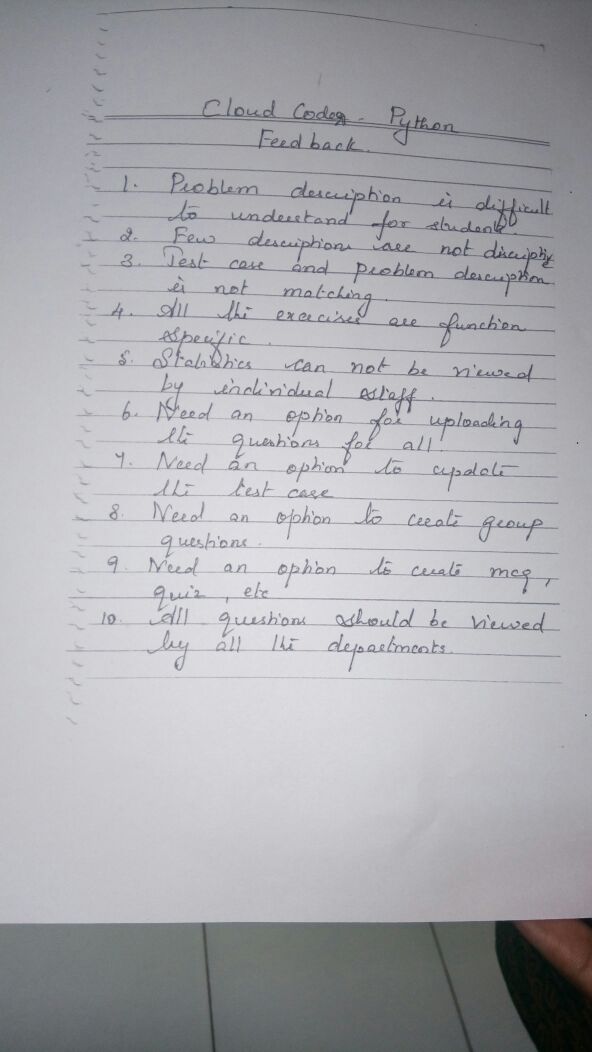 Cloud Coder - Python
Feedback.
1. Problem description is difficult
to understand for students.
2. Few descriptions are not discriptive
3. Test case and problem description
is not matching.
4. All the exercises are function
specific.
5. Statistics can not be viewed
by individual staff.
6. Need an option for uploading
the questions for all.
7. Need an option to update
the test case
8. Need an option to create group
questions.
9. Need an option to create mcq,
quiz, etc
10. All questions should be viewed
by all the departments.